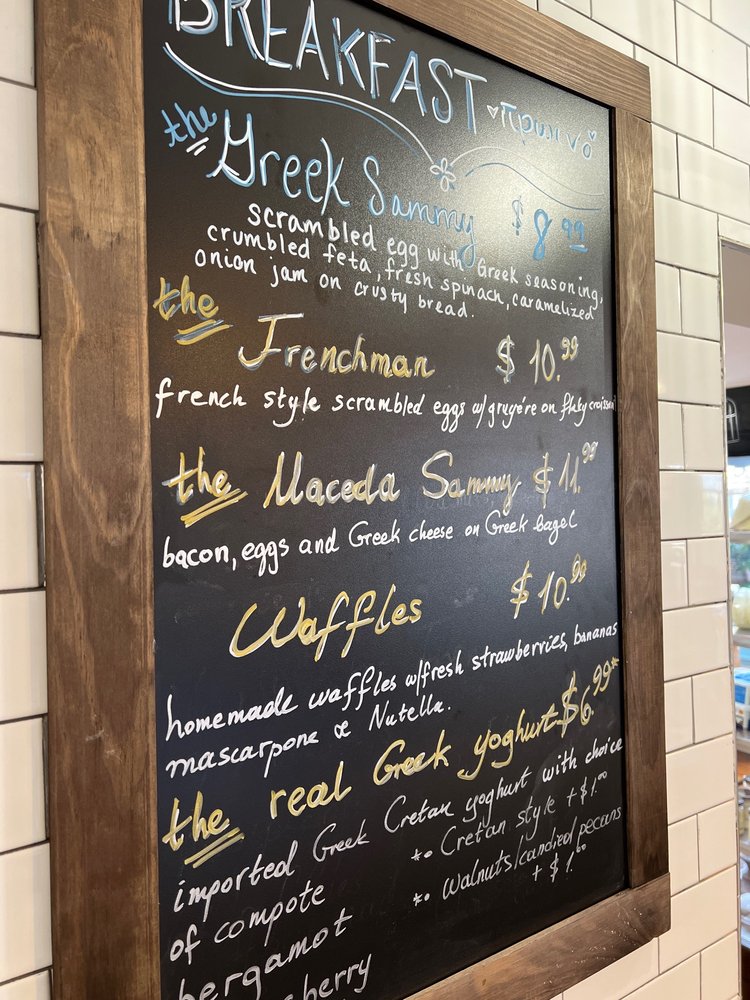 BREAKFAST πρωινό
the Greek Sammy $8.99
scrambled egg with Greek seasoning,
crumbled feta, fresh spinach, caramelized
onion jam on crusty bread.
the Frenchman $10.99
french style scrambled eggs w/gruyére on flaky
the Maceda Sammy $11.99
bacon, eggs and Greek cheese on Greek bagel
Waffles $10.99
homemade waffles w/fresh strawberries, bananas
mascarpone & Nutella.
the real Greek yoghurt $6.99*
imported Greek Cretan yoghurt with choice
of compote
bergamot
*• Cretan style +$1.00
*• Walnuts/candied pecans
+ $1.00